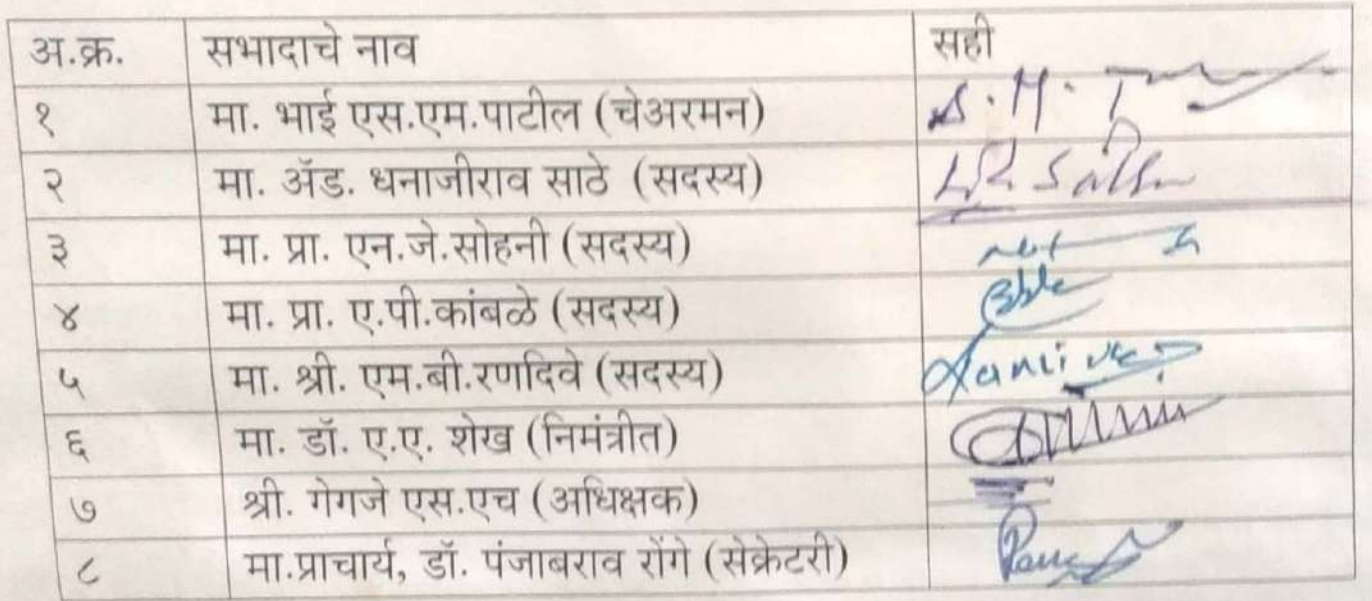 अ.क्र. सभादाचे नाव सही
१ मा. भाई एस.एम.पाटील (चेअरमन)
२ मा. ॲड. धनाजीराव साठे (सदस्य)
३ मा. प्रा. एन.जे.सोहनी (सदस्य)
४ मा. प्रा. ए.पी.कांबळे (सदस्य)
५ मा. श्री. एम.बी.रणदिवे (सदस्य)
६ मा. डॉ. ए.ए. शेख (निमंत्रीत)
७ श्री. गेगजे एस.एच (अधिक्षक)
८ मा.प्राचार्य, डॉ. पंजाबराव रोंगे (सेक्रेटरी)